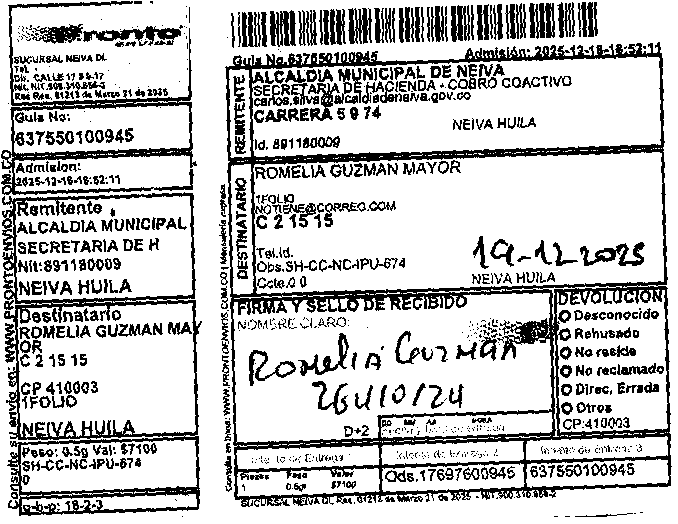 Pronto
SUCURSAL NEIVA DL
Tel. -
Dir. CALLE 17 5 6-17
Res Res. 01212 de Marzo 21 de 2025
Guia No:
637550100945
Admision:
2025-12-18-18:52:11
Remitente
ALCALDIA MUNICIPAL
SECRETARIA DE H
Nit:891180009
NEIVA HUILA
Destinatario
ROMELIA GUZMAN MAY
OR
C 2 15 15
CP 410003
1FOLIO
NEIVA HUILA
Peso: 0.5g Val: $7100
SH-CC-NC-IPU-674
0
g-b-p: 18-2-3
Consulte su envio en: WWW.PRONTOENVIOS.COM.CO
Guia No.637550100945 Admisión: 2025-12-18-18:52:11
REMITENTE
ALCALDIA MUNICIPAL DE NEIVA
SECRETARIA DE HACIENDA - COBRO COACTIVO
carlos.silva@alcaldiadeneiva.gov.co
CARRERA 5 9 74
NEIVA HUILA
Id. 891180009
DESTINATARIO
ROMELIA GUZMAN MAYOR
1FOLIO
NOTIENE@CORREO.COM
C 2 15 15
Tel.Id.
Obs.SH-CC-NC-IPU-674
Ccte.0 0
19-12-2025
NEIVA HUILA
FIRMA Y SELLO DE RECIBIDO
NOMBRE CLARO:
Romelia Guzman
26410124
D+2
DEVOLUCION
Desconocido
Rehusado
No reside
No reclamado
Direc. Errada
Otros
CP:410003
Intento de Entrega 1
Intento de Entrega 2
Intento de Entrega 3
Piezas Peso Valor
1 0.5g $7100
Ods.17697600945
637550100945
SUCURSAL NEIVA DL Res. 01212 de Marzo 21 de 2025 - NIT.900.310.856-2